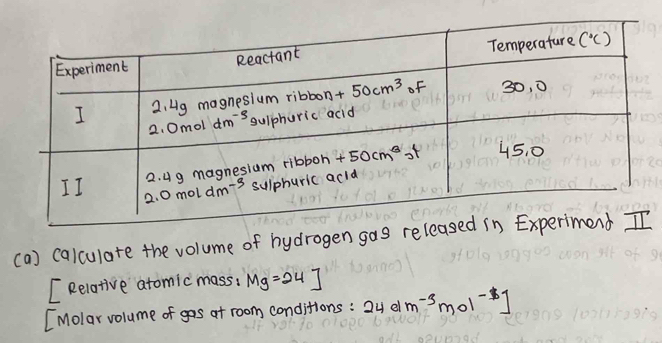 Experiment Reactant Temperature (°C)
I 2.4g magnesium ribbon + 50cm³ of 30,0
2.0mol dm⁻³ sulphuric acid
II 2.4g magnesium ribbon + 50cm³ of 45,0
2.0 mol dm⁻³ sulphuric acid
(a) Calculate the volume of hydrogen gas released in Experiment II
[Relative atomic mass: Mg=24]
[Molar volume of gas at room conditions: 24 dm⁻³ mol⁻¹]